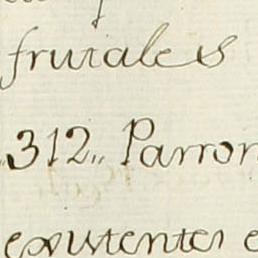 frutales
„312„ Parron
existentes e